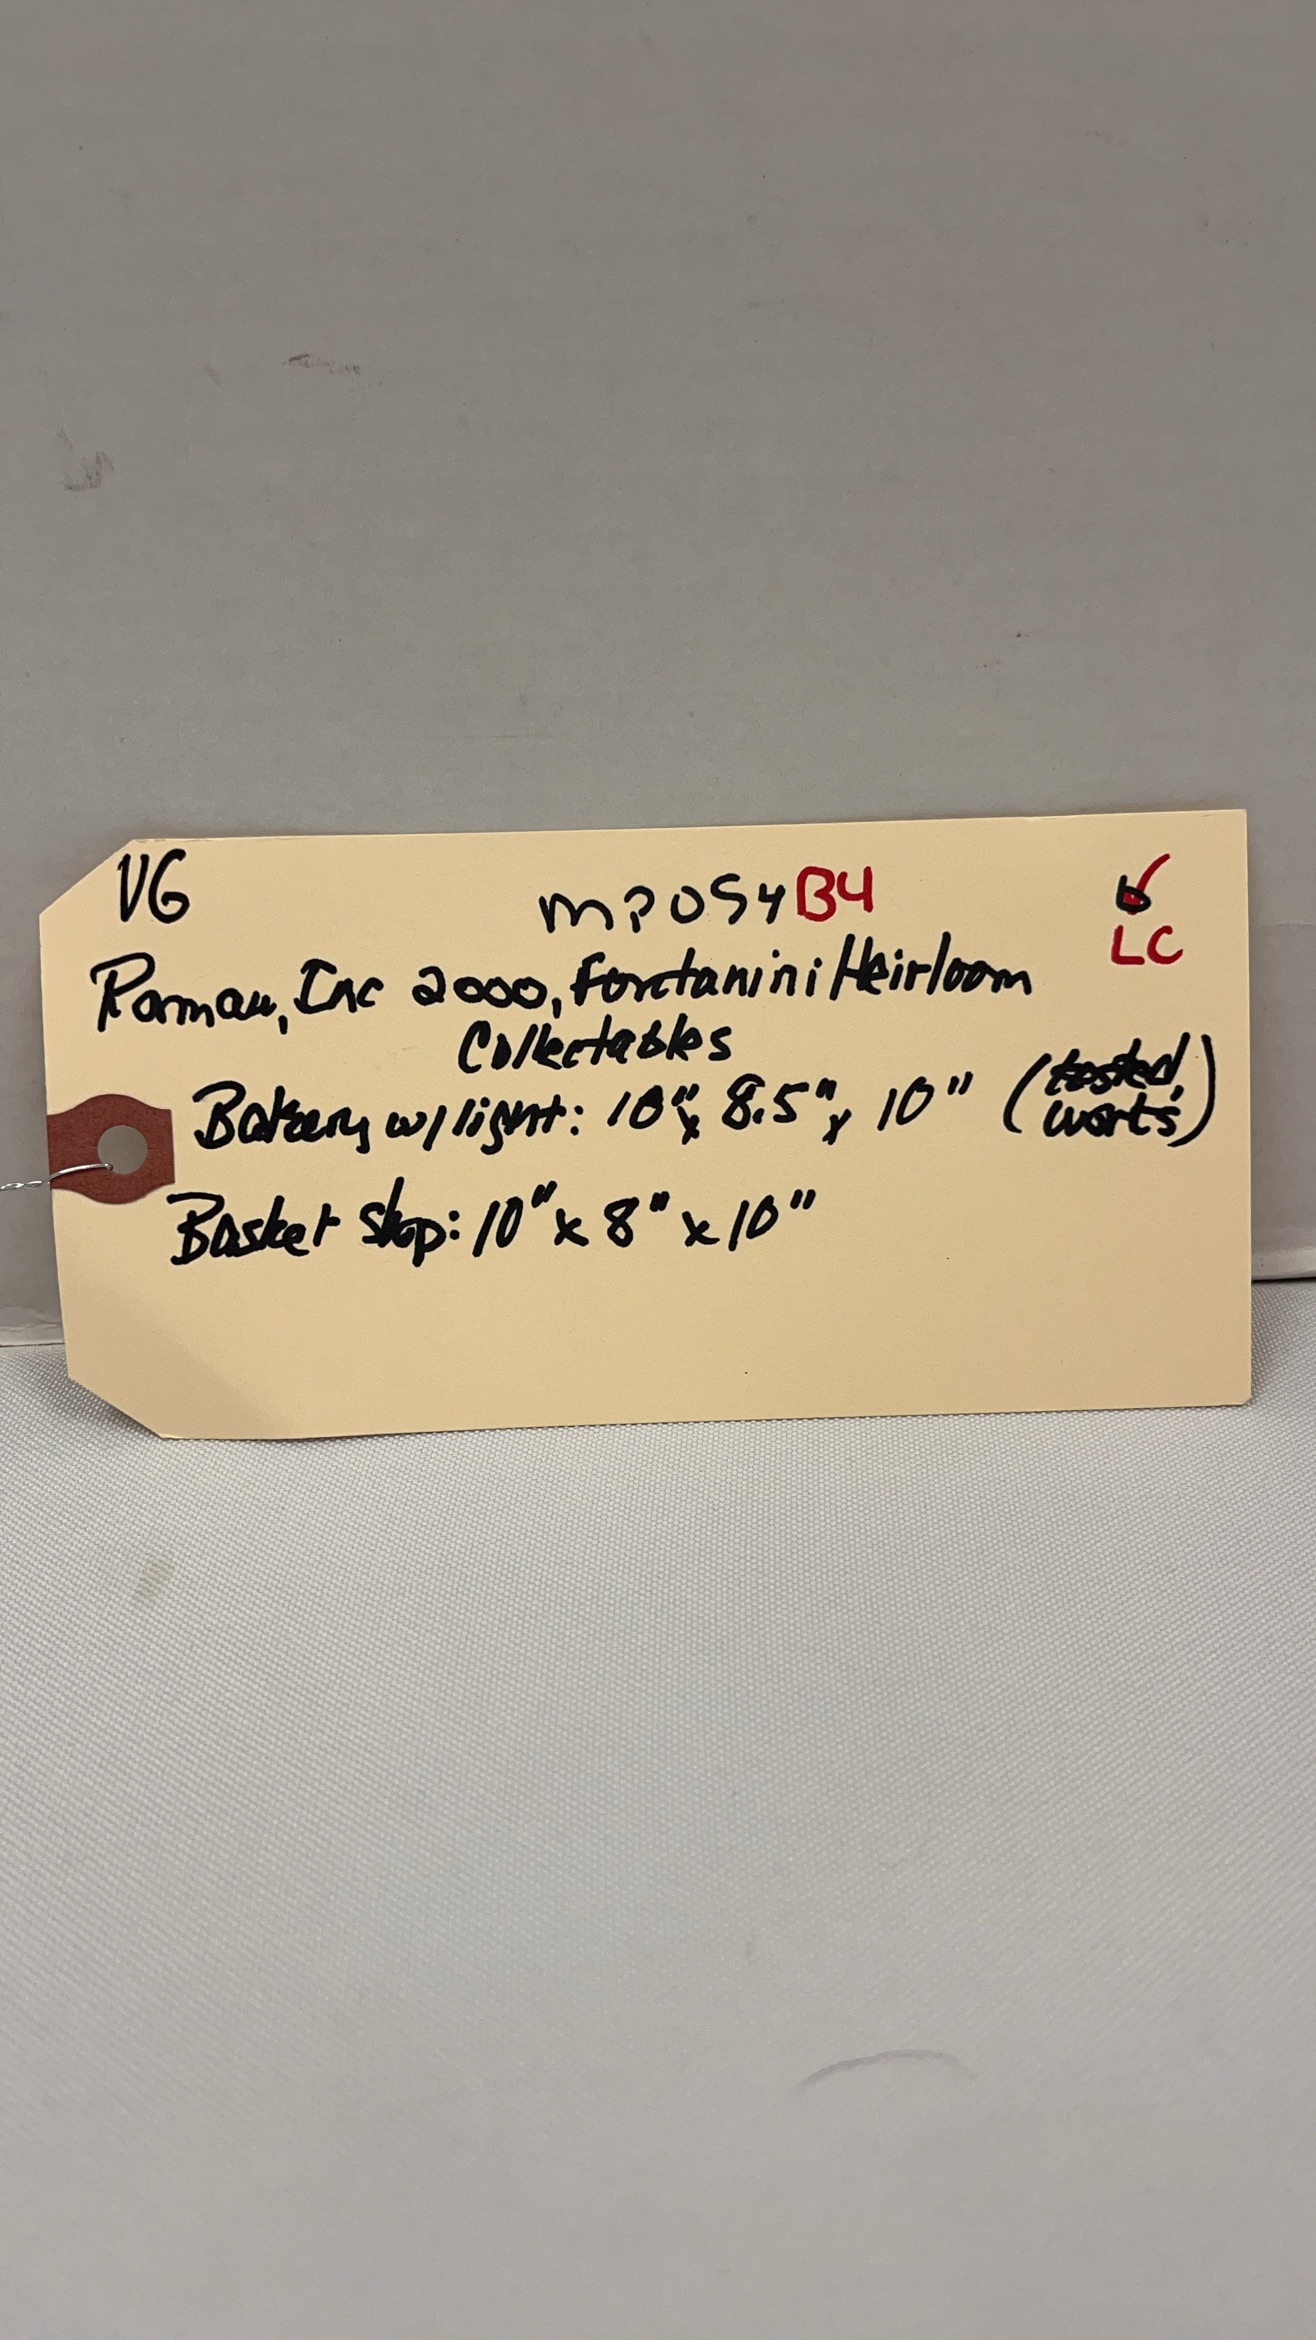 VG
MP054B4
LC
Roman, Inc 2000, Fontanini Heirloom
Collectables
Bakery w/light: 10" x 8.5" x 10" (tested, works)
Basket Shop: 10" x 8" x 10"